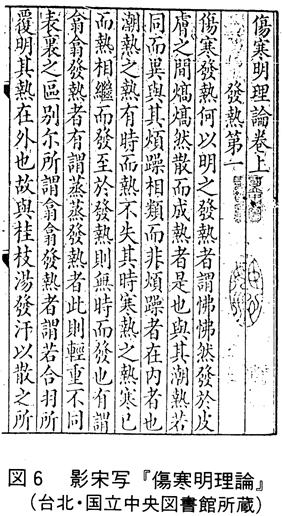 傷寒明理論卷上
發熱第一
傷寒發熱何以明之發熱者謂怫怫然發於皮
膚之間熇熇然散而成熱者是也與其潮熱若
同而異與其煩躁相類而非煩躁者在内者也
潮熱之熱有時而熱不失其時寒熱之熱寒已
而熱相繼而發至於發熱則無時而發也有謂
翕翕發熱者有謂蒸蒸發熱者此則輕重不同
表裏之區別尓所謂翕翕發熱者謂若合羽所
覆明其熱在外也故與桂枝湯發汗以散之所
図6 影宋写『傷寒明理論』
(台北・国立中央図書館所蔵)